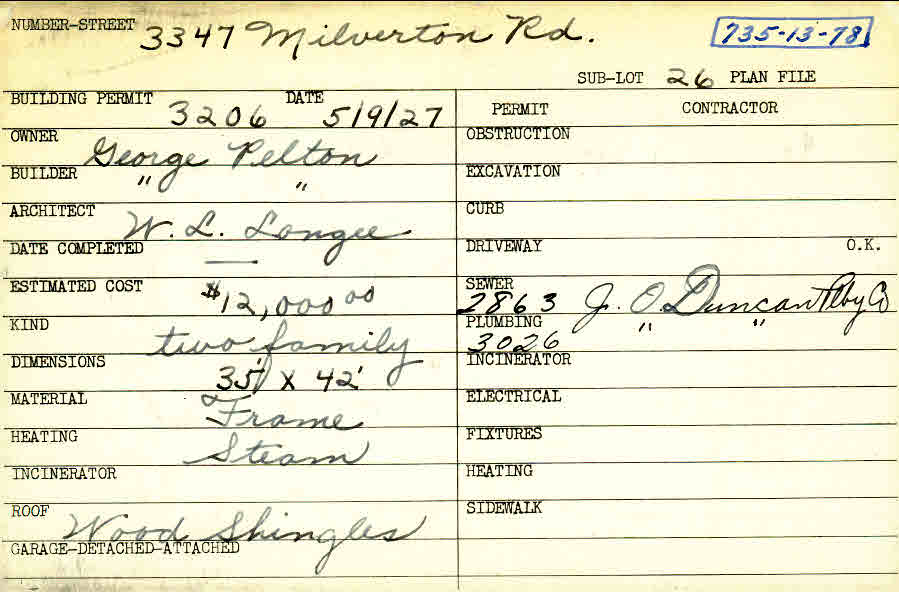 NUMBER-STREET 3347 Milverton Rd. 735-13-78
SUB-LOT 26 PLAN FILE
BUILDING PERMIT 3206 DATE 5/9/27
OWNER George Pelton
BUILDER " "
ARCHITECT W. L. Longee
DATE COMPLETED —
ESTIMATED COST $12,000 00
KIND two family
DIMENSIONS 35' X 42'
MATERIAL Frame
HEATING Steam
INCINERATOR
ROOF Wood Shingles
GARAGE-DETACHED-ATTACHED
PERMIT CONTRACTOR
OBSTRUCTION
EXCAVATION
CURB
DRIVEWAY O.K.
SEWER 2863 J. O. Duncan Plbg Co
PLUMBING 3026 " "
INCINERATOR
ELECTRICAL
FIXTURES
HEATING
SIDEWALK